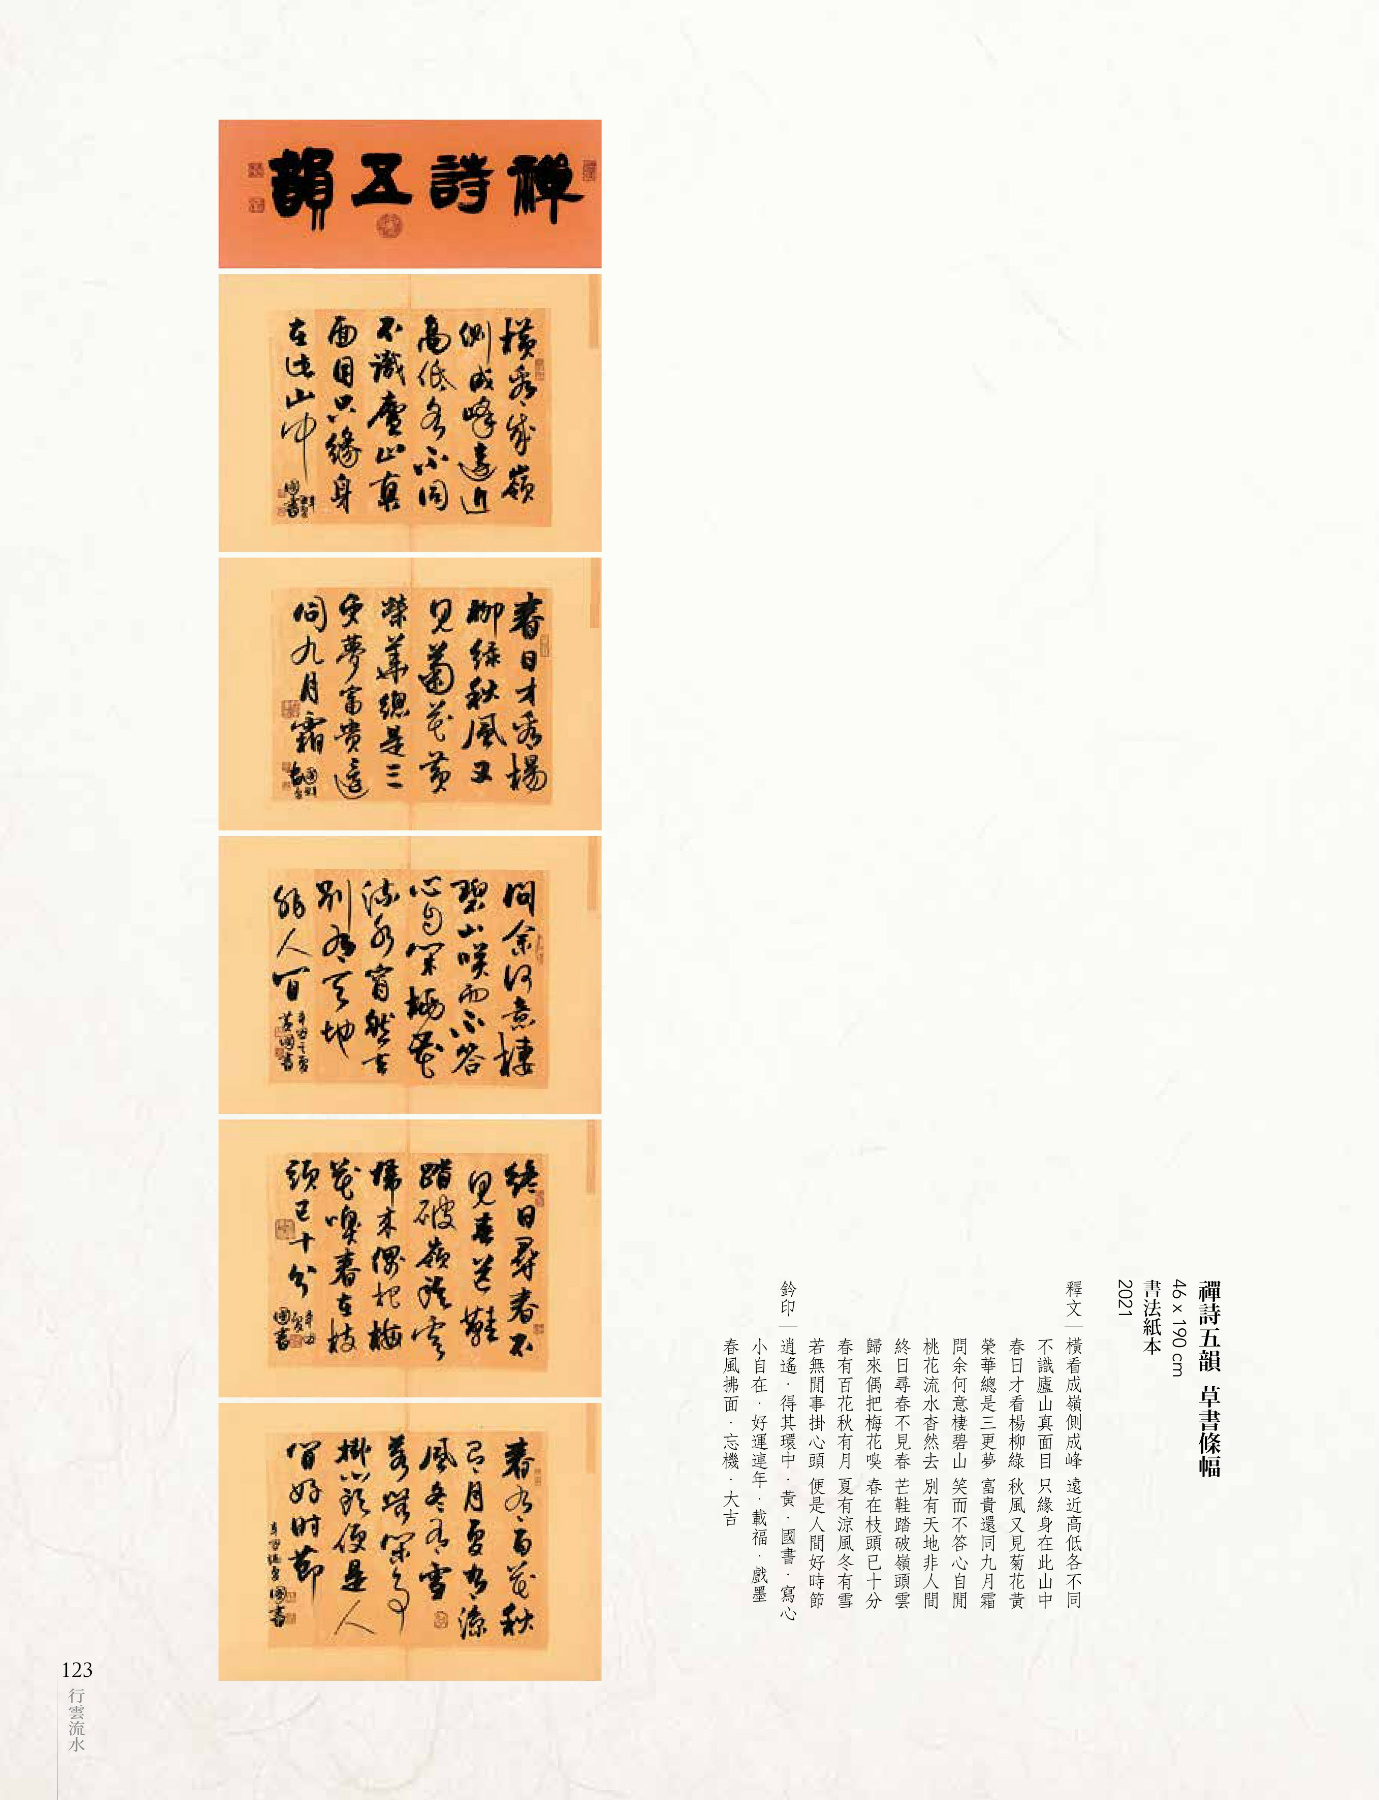 禪詩五韻
橫看成嶺
側成峰遠近
高低各不同
不識廬山真
面目只緣身
在此山中
國書
春日才看楊
柳綠秋風又
見菊花黃
榮華總是三
更夢富貴還
同九月霜
問余何意棲
碧山笑而不答
心自閑桃花
流水窅然去
別有天地
非人間
辛丑之夏
黃國書
終日尋春不
見春芒鞋
踏破嶺頭雲
歸來偶把梅
花嗅春在枝
頭已十分
辛丑夏
國書
春有百花秋
有月夏有涼
風冬有雪
若無閑事
掛心頭便是人
間好時節
國書
禪詩五韻 草書條幅
46 x 190 cm
書法紙本
2021
釋文｜橫看成嶺側成峰 遠近高低各不同
不識廬山真面目 只緣身在此山中
春日才看楊柳綠 秋風又見菊花黃
榮華總是三更夢 富貴還同九月霜
問余何意棲碧山 笑而不答心自閒
桃花流水杳然去 別有天地非人間
終日尋春不見春 芒鞋踏破嶺頭雲
歸來偶把梅花嗅 春在枝頭已十分
春有百花秋有月 夏有涼風冬有雪
若無閒事掛心頭 便是人間好時節
鈐印｜逍遙・得其環中・黃・國書・寫心
小自在・好運連年・載福・戲墨
春風拂面・忘機・大吉
123
行雲流水